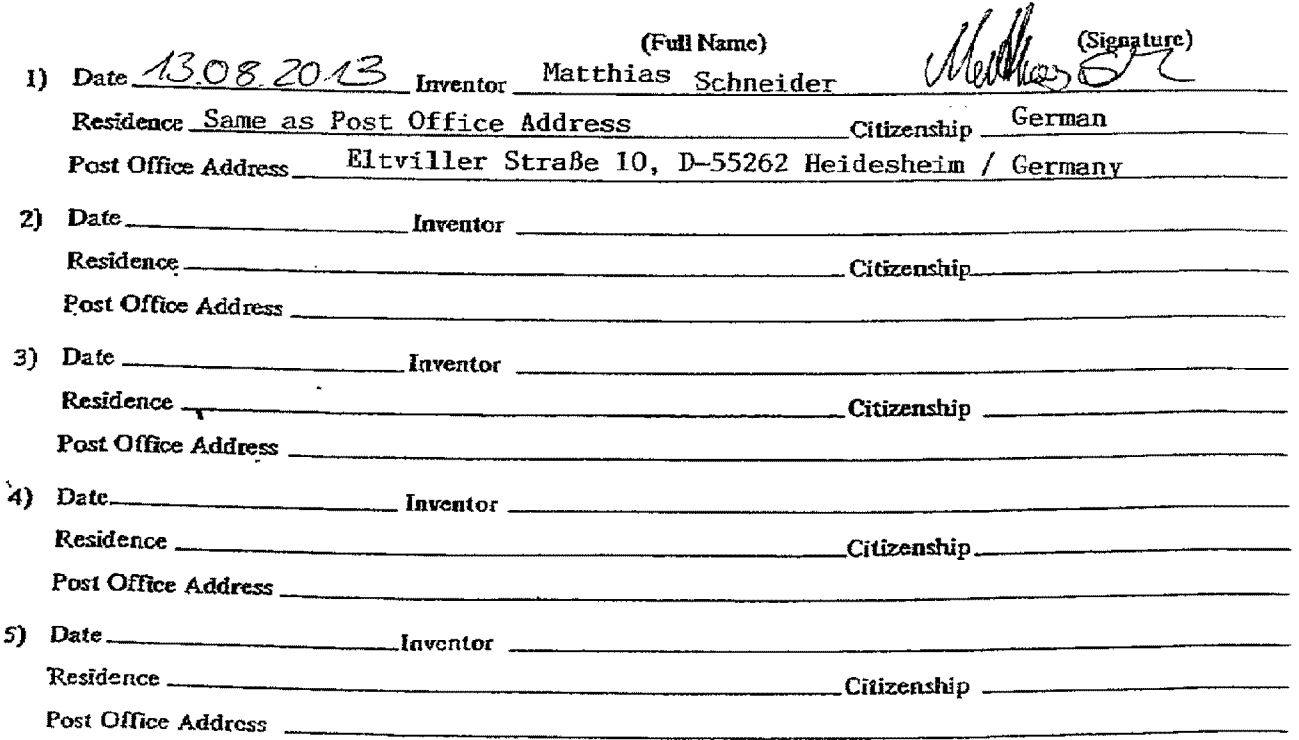 (Full Name) (Signature)
1) Date 13.08.2013 Inventor Matthias Schneider Matthias
Residence Same as Post Office Address Citizenship German
Post Office Address Eltviller Straße 10, D-55262 Heidesheim / Germany
2) Date Inventor
Residence Citizenship
Post Office Address
3) Date Inventor
Residence Citizenship
Post Office Address
4) Date Inventor
Residence Citizenship
Post Office Address
5) Date Inventor
Residence Citizenship
Post Office Address